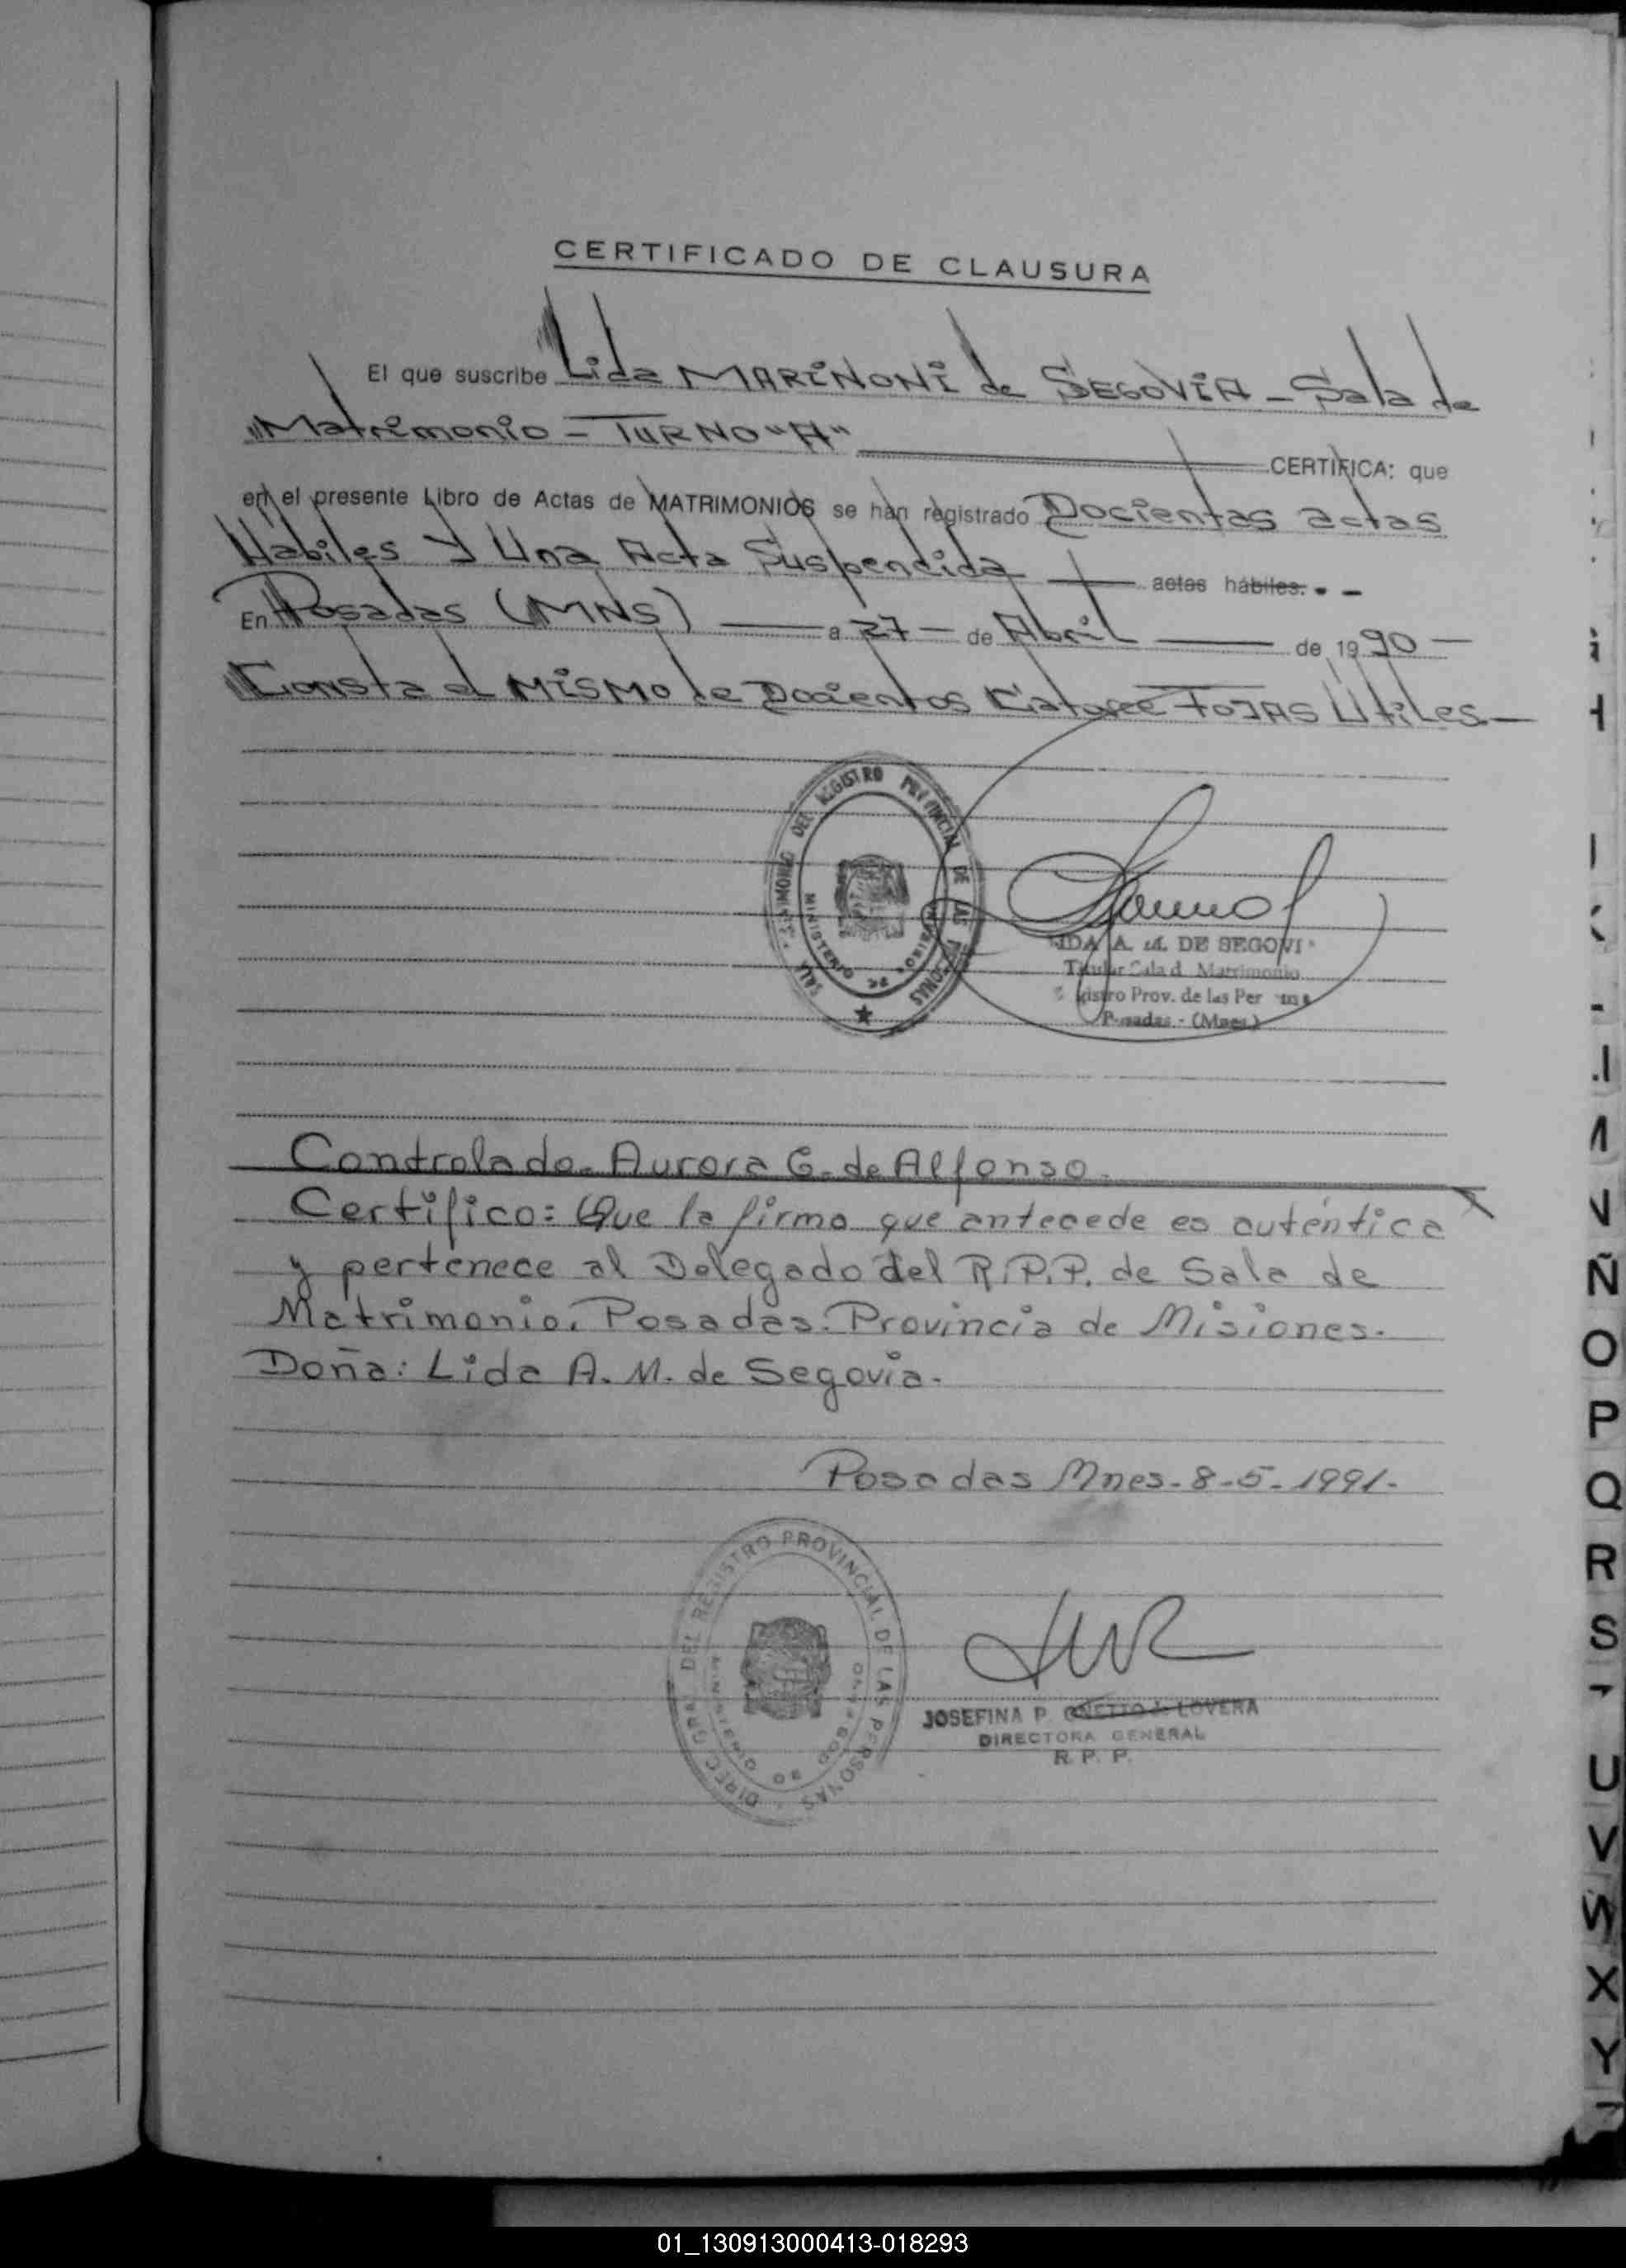 CERTIFICADO DE CLAUSURA
El que suscribe Lida MARINONI de SEGOVIA - Sala de
Matrimonio - TURNO "A" CERTIFICA: que
en el presente Libro de Actas de MATRIMONIOS se han registrado Docientas actas
Habiles y Una Acta Suspendida actas hábiles. - -
En Posadas (MNS) a 27 - de Abril de 1990 -
Consta el MISMO de Docientos Catorce FOJAS Utiles -
DEL REGISTRO PROVINCIAL DE LAS PERSONAS
MINISTERIO DE
DE SEGOVI
Titular Sala d Matrimonio
istro Prov. de las Per
Posadas - (Mnes.)
Controlado. Aurora G. de Alfonso.
Certifico: Que la firma que antecede es auténtica
y pertenece al Delegado del R.P.P. de Sala de
Matrimonio. Posadas. Provincia de Misiones.
Doña: Lida A. M. de Segovia.
Posadas Mnes - 8 - 5 - 1991 -
DIREC GRAL DEL REGISTRO PROVINCIAL DE LAS PERSONAS
MINISTERIO DE GOBIERNO
JOSEFINA P. GNETTO de LOVERA
DIRECTORA GENERAL
R. P. P.
I
K
L
M
N
Ñ
O
P
Q
R
S
T
U
V
W
X
Y
Z
01_130913000413-018293